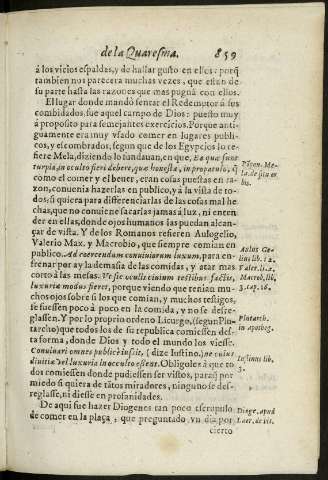 de la Quaresma. 859
á los vicios espaldas, y de hallar gusto en ellos: porq̃
tambien nos parecera muchas vezes, que estan de
su parte hasta las razones que mas pugnã con ellos.
El lugar donde mandó sentar el Redemptor á sus
combidados, fue aquel campo de Dios: puesto muy
a proposito para semejantes exercicios. Porque anti-
guamente era muy vsado comer en lugares publi-
cos, y escombrados, segun que de los Egypcios lo re-
fiere Mela, diziendo lo fundauan, en que, Ea quæ sunt
turpia, in occulto fieri debere, quæ honesta, in propatulo, q̃
como el comer y el beuer, eran cosas puestas en ra-
zon, conuenia hazerlas en publico, y á la vista de to-
dos: si quiera para differenciarlas de las cosas mal he
chas, que no conuiene sacarlas jamas á luz, ni enten
der en ellas, donde ojos humanos las puedan alcan-
çar de vista. Y de los Romanos refieren Aulogelio,
Valerio Max. y Macrobio, que siempre comian en
publico. Ad coercendum conuiuiorum luxum, para en-
frenar por ay la demasia de las comidas, y atar mas
corto á las mesas. Vt sic oculis ciuium testibus factis,
luxuriæ modus fieret, porque viendo que tenian mu-
chos ojos sobre si los que comian, y muchos testigos,
se fuessen poco á poco en la comida, y no se desre-
glassen. Y por lo proprio ordeno Licurgo, (segun Plu-
tarcho) que todos los de su republica comiessen des-
ta forma, donde Dios y todo el mundo los viesse.
Conuiuari omnes publicè iussit, (dize Iustino,) ne cuius
diuitiæ vel luxuria in occulto essent. Obligoles á que to
dos comiessen donde pudiessen ser vistos, para q̃ por
miedo si quiera de tãtos miradores, ninguno se des-
reglasse, ni diesse en profanidades.
De aqui fue hazer Diogenes tan poco escrupulo
de comer en la plaça, que preguntado vn dia por
cierto
Pōpon. Me-
la. de situ or
bis.
Aulos Ge-
lius lib. 12.
Valer. li. 2.
Macrob. lib.
3. cap. 16.
Plutarch.
in apotheg.
Iustinus lib.
3.
Dioge. apud
Laer. de vit.